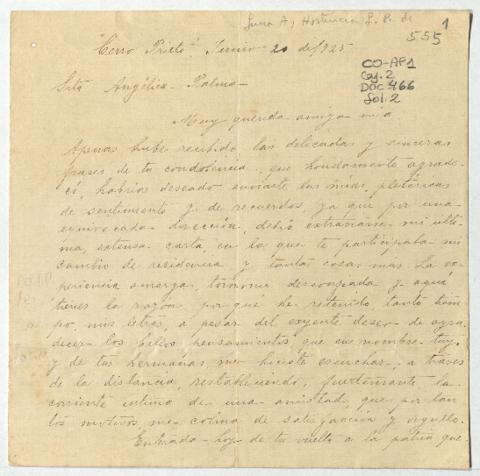 Luna A, Hortencia L. P. de
1
555
CO-AP1
Caj. 2
Doc 466
Fol. 2
"Cerro Prieto". Junio 20 de 1925.
Srta Angélica Palma
Muy querida amiga mia
Apenas hube recibido las delicadas y sinceras
frases de tu condolencia, que hondamente agrade-
cí, habria deseado enviarte las mias, pletóricas
de sentimiento y de recuerdos ya que por una
equivocada dirección, debió extraviarse mi ulti-
ma, extensa carta en la que te participaba mi
cambio de residencia y tantas cosas más. La ex-
periencia amarga, tornóme desconfiada y aquí
tienes la razón por qué he retenido, tanto tiem-
po, mis letras, a pesar del exigente deseo de agra-
decer los bellos pensamientos que en nombre tuyo
y de tus hermanas, me hiciste escuchar, a través
de la distancia, restableciendo, fuertemente la
corriente intima de una amistad, que por tan
tos motivos, me colma de satisfacción y orgullo.
Enterada hoy de tu vuelta a la patria que